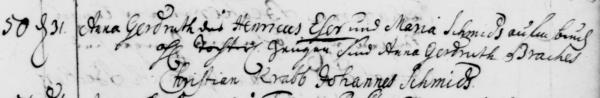 50 31. Anna Gerdruth des Henricus Eser und Maria Schmids
Tochter. Zeugen sind Anna Gerdruth Braches
Christian Krabb Johannes Schmids